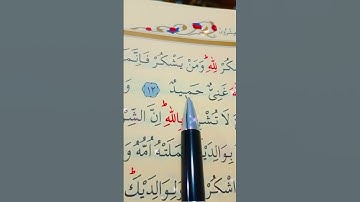 شْكُرْ لِلّٰهِ وَمَنْ يَشْكُرْ فَاِنَّمَا
غَنِىٌّ حَمِيدٌ ﴿١٢﴾ وَ
لَا تُشْرِكْ بِاللّٰهِ اِنَّ الشِّرْ
بِوَالِدَيْهِ حَمَلَتْهُ اُمُّهُ وَ
اشْكُرْ وَلِوَالِدَيْكَ